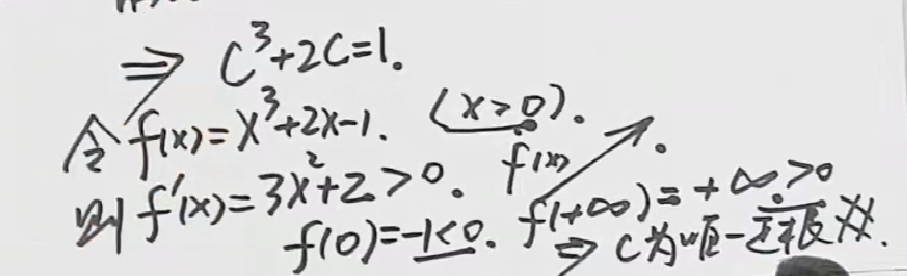 ⇒ C³+2C=1.
令 f(x)=x³+2x-1. (x>0).
则 f'(x)=3x²+2>0. f(x) ↗.
f(0)=-1<0. f(+∞)=+∞>0
⇒ C为唯一正根